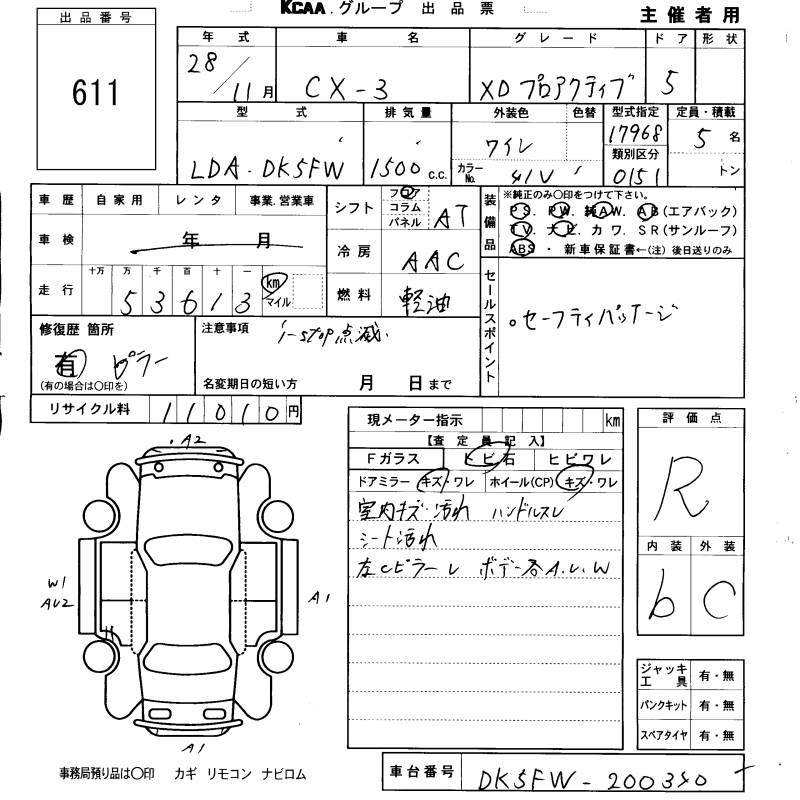 KCAA.グループ 出品票
主催者用
出品番号
611
年式 車名 グレード ドア 形状
28/11月 CX-3 XD プロアクティブ 5
型式 排気量 外装色 色替 型式指定 定員・積載
LDA-DK5FW 1500 c.c. ワイレ 17968 5名
カラーNo. 41V 類別区分 0151 トン
車歴 自家用 レンタ 事業.営業車
シフト フロア コラム パネル AT
車検 年 月
冷房 AAC
走行 十万 万 千 百 十 一
53613 km マイル
燃料 軽油
装備品
※純正のみ〇印をつけて下さい。
PS. PW. 純AW. AB(エアバック)
TV. ナビ. カワ. SR(サンルーフ)
ABS・新車保証書←(注)後日送りのみ
セールスポイント
。セーフティパッケージ
修復歴 箇所
有 ピラー
(有の場合は〇印を)
注意事項
i-stop点滅.
名変期日の短い方 月 日まで
リサイクル料 11010円
現メーター指示 km
【査定員記入】
Fガラス トビ石 ヒビワレ
ドアミラー キズ・ワレ ホイール(CP) キズ・ワレ
室内キズ・汚れ ハンドルスレ
シート汚れ
左Cピラーレ ボデー各A.U.W
評価点
R
内装 外装
b C
A2
W1
AU2
A1
A1
ジャッキ工具 有・無
パンクキット 有・無
スペアタイヤ 有・無
事務局預り品は〇印 カギ リモコン ナビロム
車台番号 DK5FW-200340